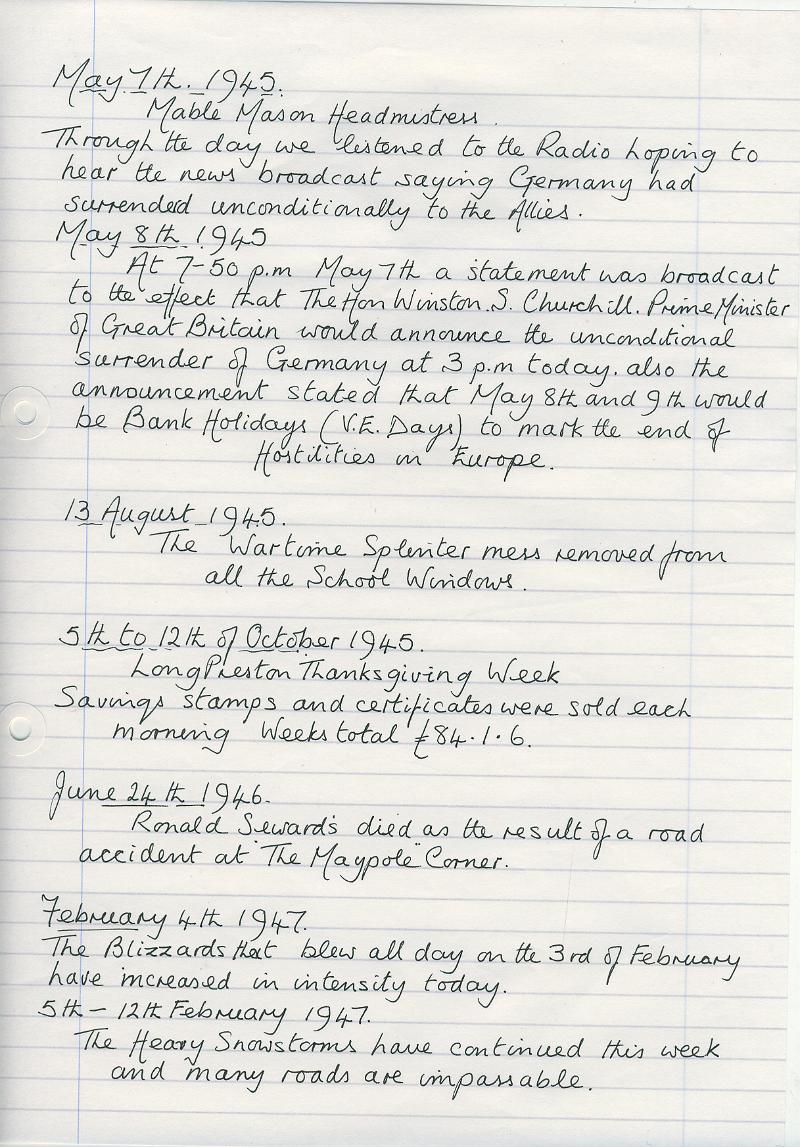 May 7th. 1945.
Mable Mason Headmistress.
Through the day we listened to the Radio hoping to
hear the news broadcast saying Germany had
surrended unconditionally to the Allies.
May 8th 1945
At 7-50 p.m May 7th a statement was broadcast
to the effect that The Hon Winston. S. Churchill. Prime Minister
of Great Britain would announce the unconditional
surrender of Germany at 3 p.m today. also the
announcement stated that May 8th and 9th would
be Bank Holidays (V.E. Days) to mark the end of
Hostilities in Europe.
13 August 1945.
The Wartime Splinter mess removed from
all the School Windows.
5th to 12th of October 1945.
Long Preston Thanksgiving Week
Savings stamps and certificates were sold each
morning Weeks total £84.1.6.
June 24th 1946.
Ronald Seward's died as the result of a road
accident at "The Maypole" Corner.
February 4th 1947.
The Blizzards that blew all day on the 3rd of February
have increased in intensity today.
5th - 12th February 1947.
The Heavy Snowstorms have continued this week
and many roads are impassable.